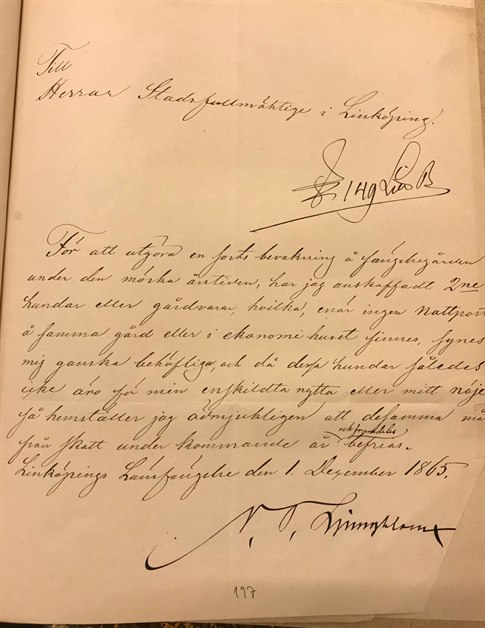 Till
Herrar Stadsfullmäktige i Linköping!
§ 149 Litt B
För att utgöra en sorts bevakning å fängelsegården
under den mörka årstiden, har jag anskaffadt 2ne
hundar eller gårdvarar, hvilka, enär ingen Nattpost
å samma gård eller i ekonomi huset finnes, synes
mig ganska behöfliga, och då dessa hundar således
icke äro för min enskildta nytta eller mitt nöje
så hemställer jag ödmjukligen att desamma må
från skatt under kommande år befrias.
Linköpings Länsfängelse den 1. Dezember 1865.
N. T. Ljungblom
197